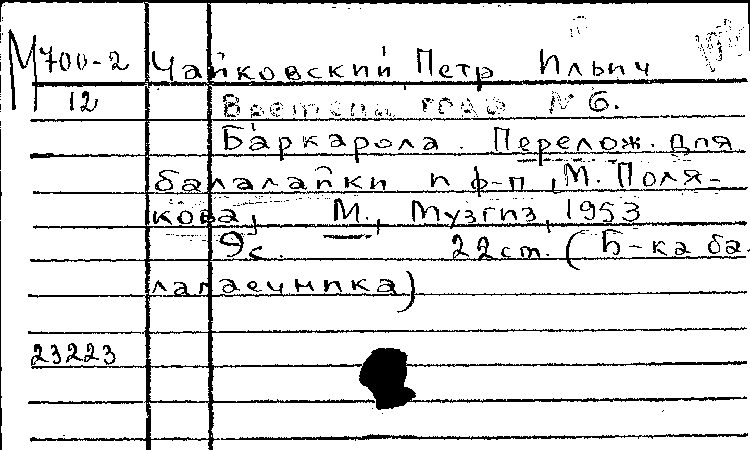 М700-2 Чайковский Петр Ильич
12 Времена года № 6.
Баркарола. Перелож. для
балалайки и ф-п, М. Поля-
кова, М., Музгиз, 1953
9с. 22 cm. (Б-ка ба-
лалаечника)
23223